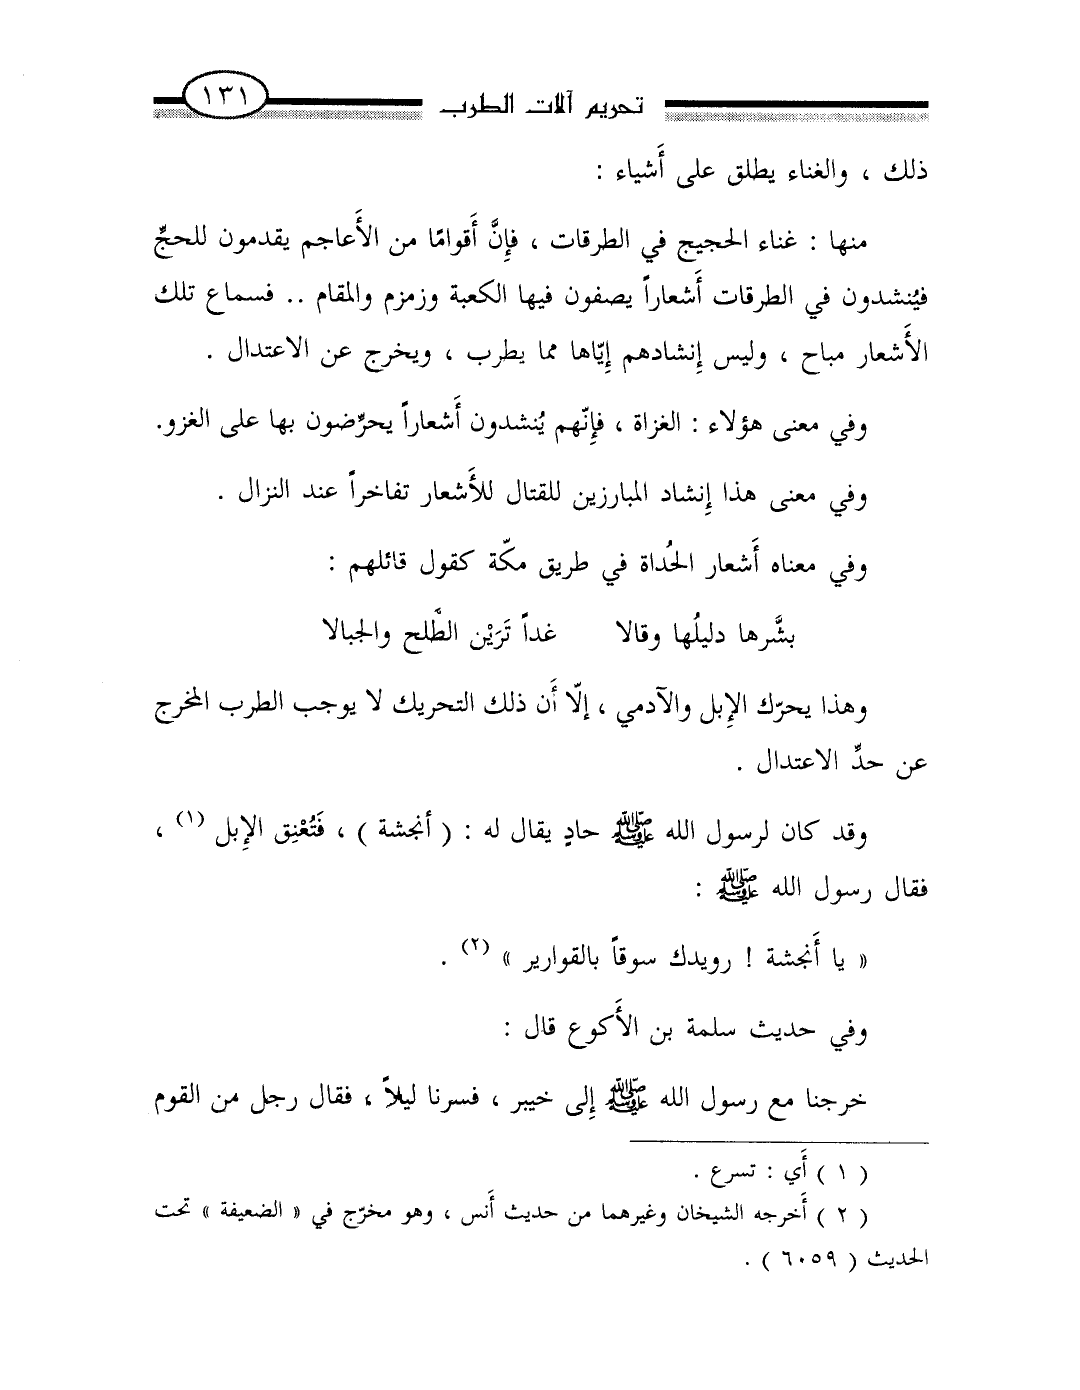 تحريم آلات الطرب ١٣١
ذلك ، والغناء يطلق على أَشياء :
منها : غناء الحجيج في الطرقات ، فإِنَّ أَقوامًا من الأَعاجم يقدمون للحجِّ
فيُنشدون في الطرقات أَشعاراً يصفون فيها الكعبة وزمزم والمقام .. فسماع تلك
الأَشعار مباح ، وليس إِنشادهم إِيّاها مما يطرب ، ويخرج عن الاعتدال .
وفي معنى هؤلاء : الغزاة ، فإِنّهم يُنشدون أَشعاراً يحرِّضون بها على الغزو.
وفي معنى هذا إِنشاد المبارزين للقتال للأَشعار تفاخراً عند النزال .
وفي معناه أَشعار الحُداة في طريق مكّة كقول قائلهم :
بشَّرها دليلُها وقالا غداً تَرَيْن الطَّلح والجبالا
وهذا يحرّك الإِبل والآدمي ، إلّا أَن ذلك التحريك لا يوجب الطرب المخرج
عن حدِّ الاعتدال .
وقد كان لرسول الله ﷺ حادٍ يقال له : ( أنجشة ) ، فَتُعْنِق الإِبل (١) ،
فقال رسول الله ﷺ :
« يا أَنجشة ! رويدك سوقاً بالقوارير » (٢) .
وفي حديث سلمة بن الأَكوع قال :
خرجنا مع رسول الله ﷺ إِلى خيبر ، فسرنا ليلاً ، فقال رجل من القوم
( ١ ) أَي : تسرع .
( ٢ ) أَخرجه الشيخان وغيرهما من حديث أَنس ، وهو مخرّج في « الضعيفة » تحت
الحديث ( ٦٠٥٩ ) .